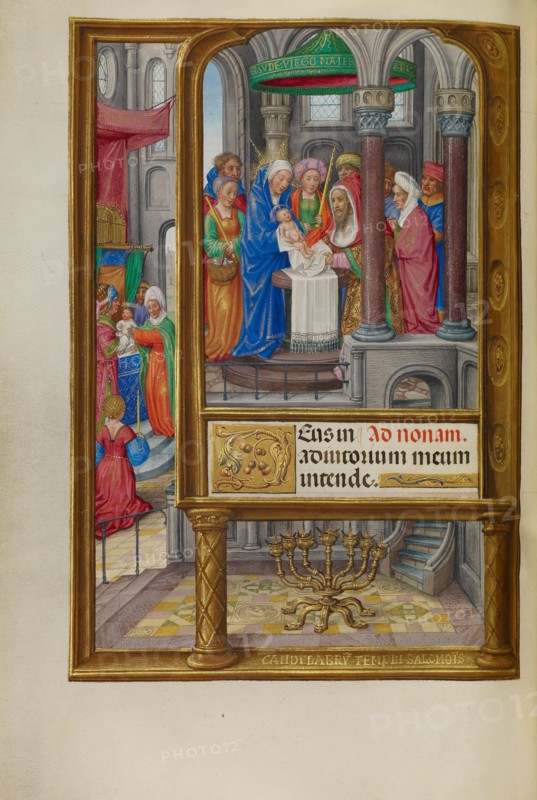 AVDE·VIRGO MATER
Deus in Ad nonam.
adiutorium meum
intende.
CANDELABRV TEMPLI SALOMOIS
PHOTO12